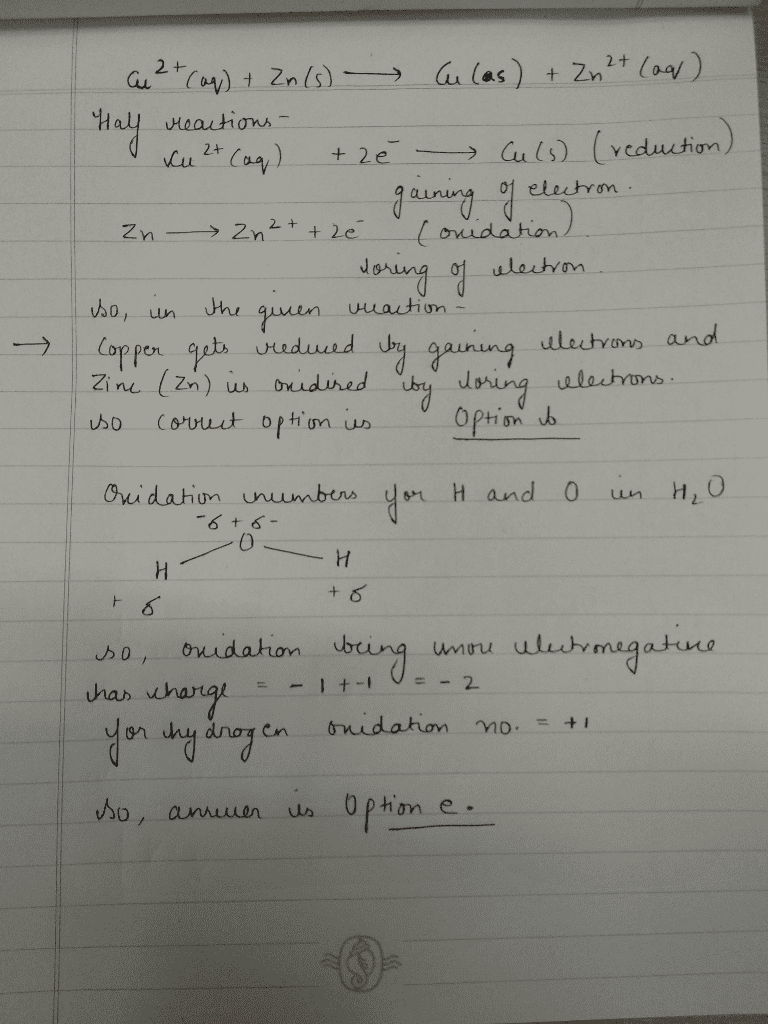 Cu²⁺(aq) + Zn(s) ⟶ Cu(as) + Zn²⁺(aq)
Half reactions-
Cu²⁺(aq) + 2e⁻ ⟶ Cu(s) (reduction)
gaining of electron.
Zn ⟶ Zn²⁺ + 2e⁻ (oxidation).
losing of electron.
so, in the given reaction-
→ Copper gets reduced by gaining electrons and
Zinc (Zn) is oxidised by losing electrons.
so correct option is Option b
Oxidation numbers for H and O in H₂O
-δ + δ-
O
H H
+ δ + δ
so, oxidation being more electronegative
has charge = -1 + -1 = -2
for hydrogen oxidation no. = +1
so, answer is Option e.